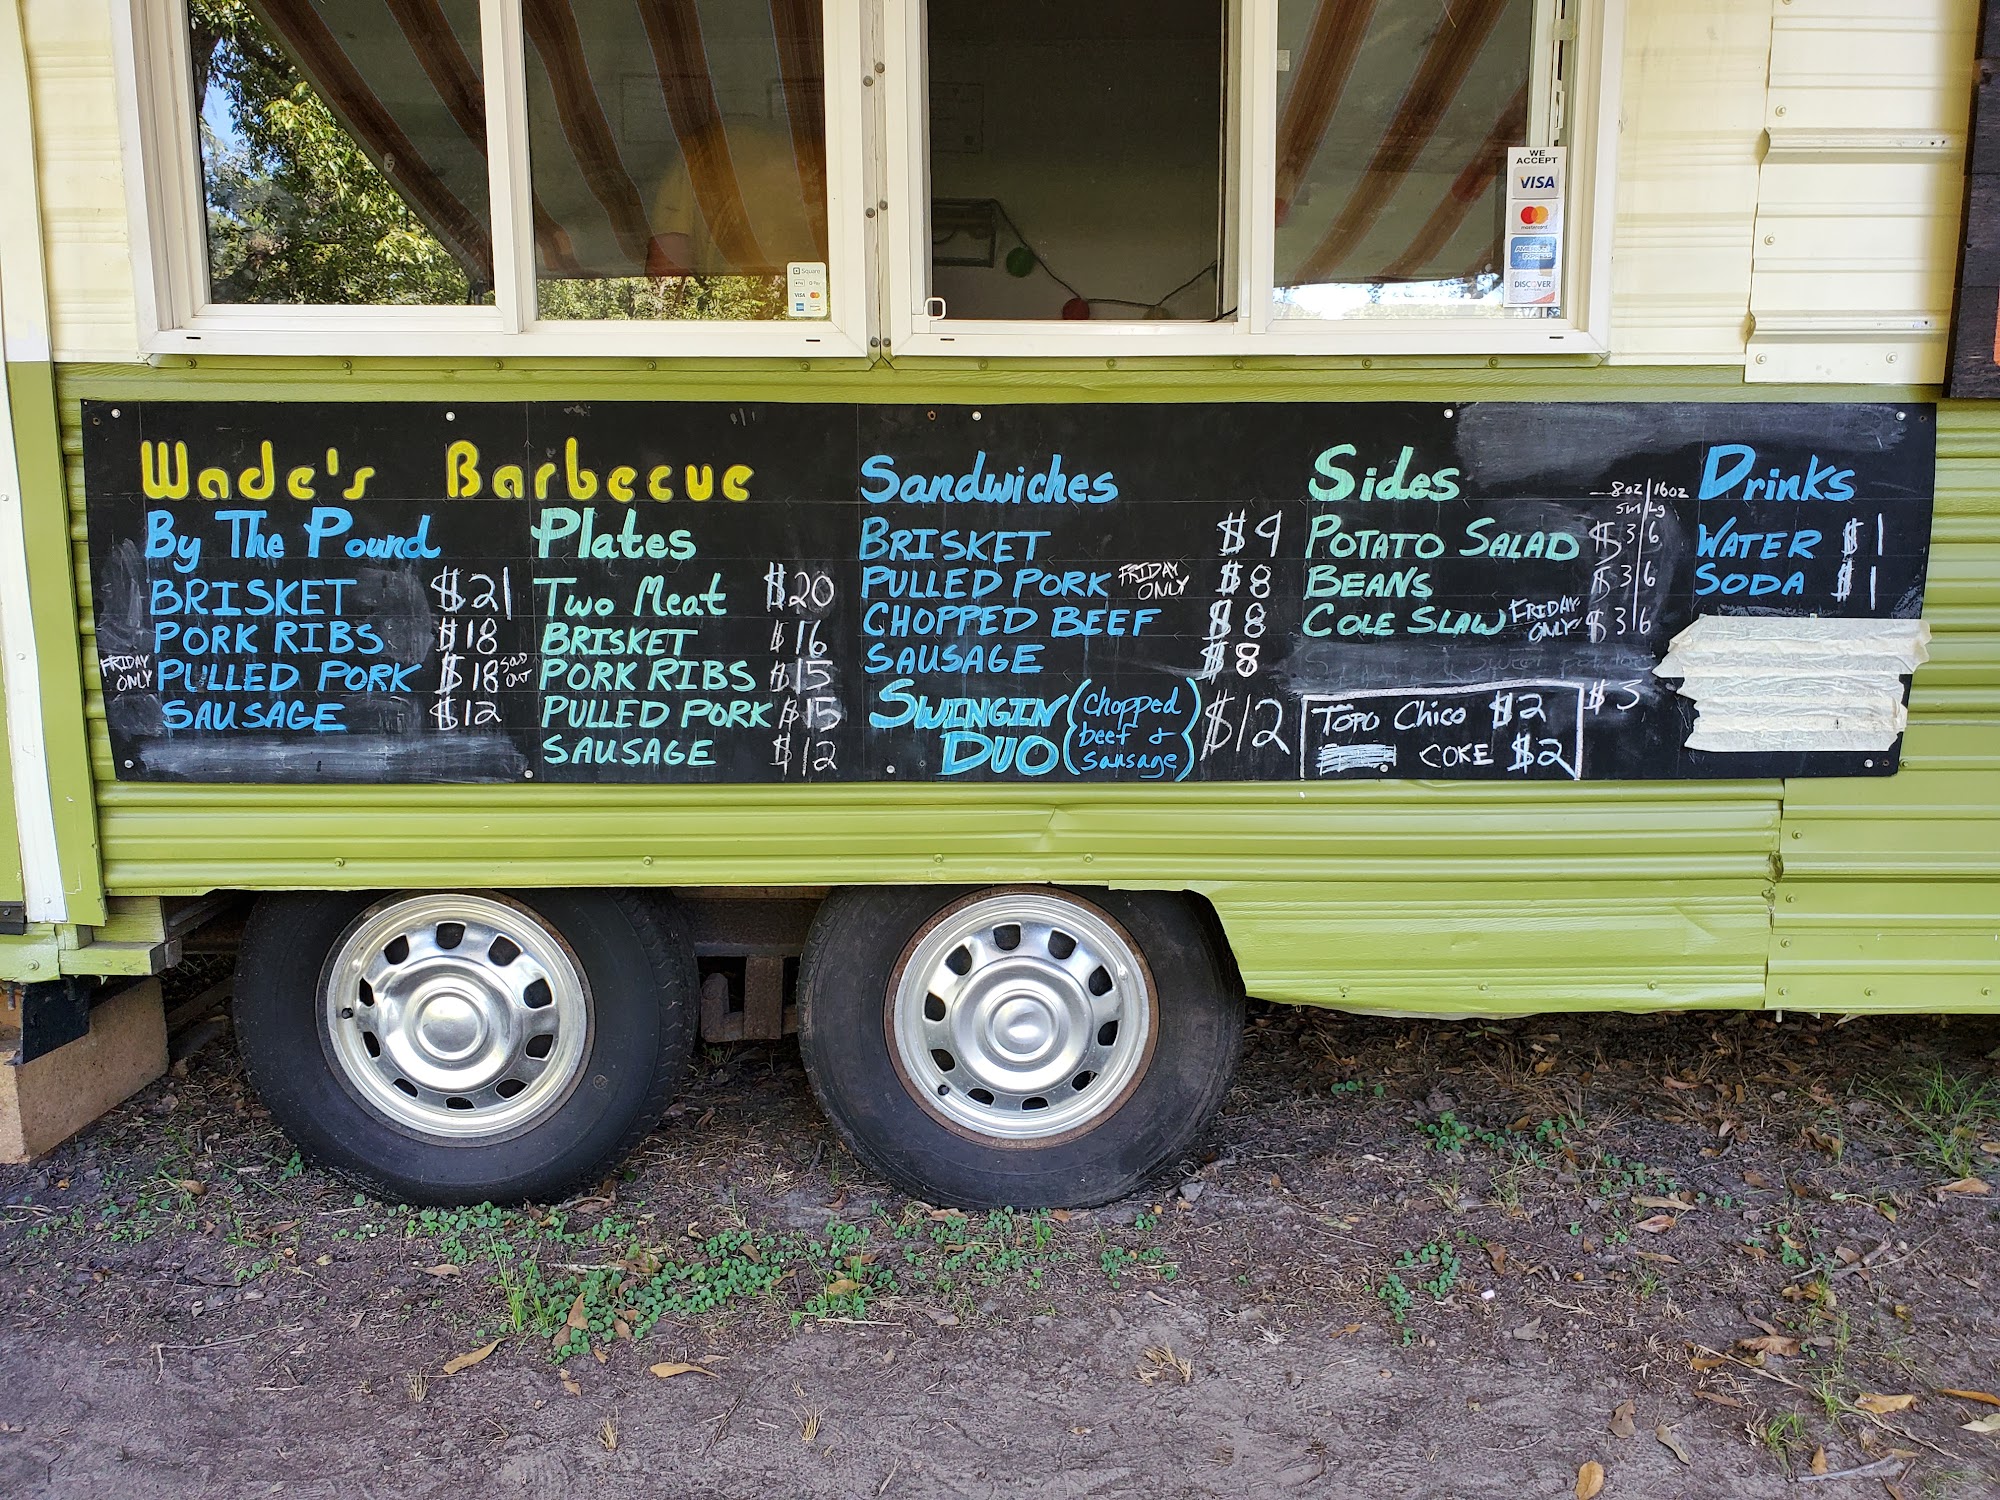 WE
ACCEPT
VISA
mastercard
AMERICAN EXPRESS
DISCOVER
Square
Pay G Pay
VISA
Wade's Barbecue
By The Pound
BRISKET $21
PORK RIBS $18
FRIDAY ONLY PULLED PORK $18 SOLD OUT
SAUSAGE $12
Plates
Two Meat $20
BRISKET $16
PORK RIBS $15
PULLED PORK $15
SAUSAGE $12
Sandwiches
BRISKET $9
PULLED PORK FRIDAY ONLY $8
CHOPPED BEEF $8
SAUSAGE $8
SWINGIN DUO (Chopped beef & sausage) $12
Sides
8oz 16oz
sm Lg
POTATO SALAD $3 6
BEANS $3 6
COLE SLAW FRIDAY ONLY $3 6
$3
TOPO Chico $2
COKE $2
Drinks
WATER $1
SODA $1